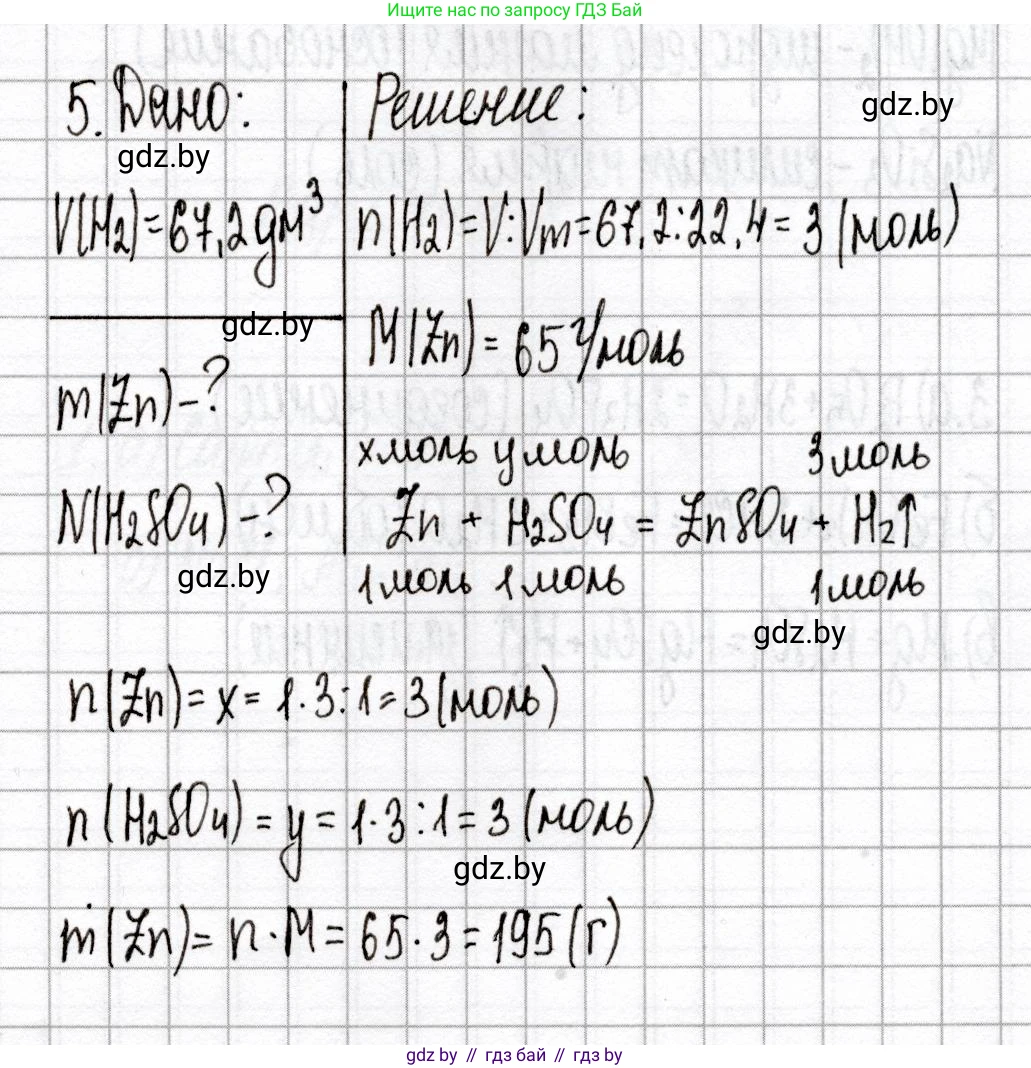 Ищите нас по запросу ГДЗ Бай
5. Дано:
Решение:
gdz.by
gdz.by
V(H₂)=67,2 дм³
n(H₂)=V:Vm=67,2:22,4=3 (моль)
gdz.by
M(Zn)=65 г/моль
m(Zn)-?
x моль y моль 3 моль
N(H₂SO₄)-?
Zn + H₂SO₄ = ZnSO₄ + H₂↑
gdz.by
1 моль 1 моль 1 моль
gdz.by
n(Zn)=x=1·3:1=3(моль)
n(H₂SO₄)=y=1·3:1=3 (моль)
gdz.by
m(Zn)=n·M=65·3=195(г)
gdz.by // гдз бай // гдз by